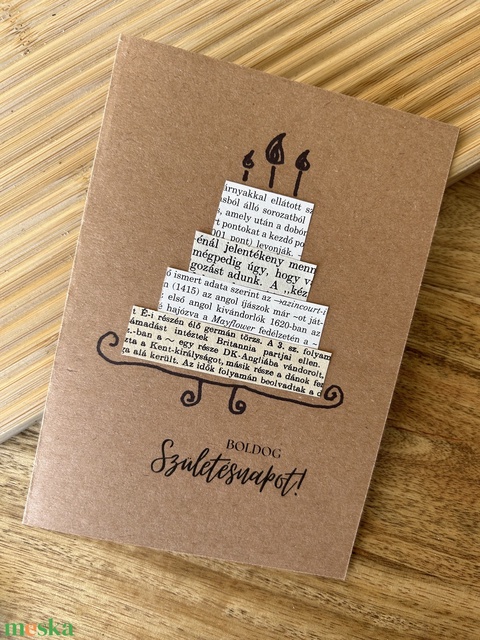 árnyakkal ellátott
ásból álló sorozatból
s, amely után a dobó
t pontokat a kezdő po
001 pont) levonják.
énál jelentékeny menn
mégpedig úgy, hogy v
gozást adunk. A „kéz
ismert adata szerint az →azincourt-i
(1415) az angol íjászok már ~ot ját-
első angol kivándorlók 1620-ban az
hajózva a Mayflower fedélzetén a ~
É-i részén élő germán törzs. A 3. sz. folyam
ámadást intéztek Britannia partjai ellen.
-ban a ~ egy része DK-Angliába vándorolt,
ta a Kent-királyságot, másik része a dánok
ga alá került. Az idők folyamán beolvadtak a d
BOLDOG
Születésnapot!
meska